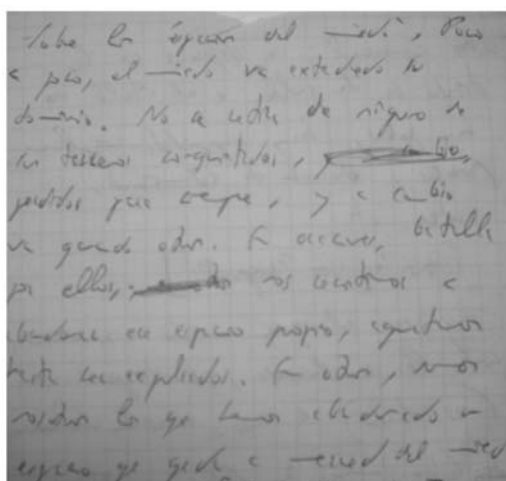 Sobre los espacios del miedo, Poco
a poco, el miedo va extendiendo su
dominio. No se retira de ninguno de
los terrenos conquistados,
perdidos para siempre, y a cambio
va ganando otros. En ocasiones, batalla
por ellos, nos resistimos a
abandonar ese espacio propio, aguantamos
hasta ser expulsados. En otros, somos
nosotros los que hemos abandonado un
espacio que queda a merced del miedo